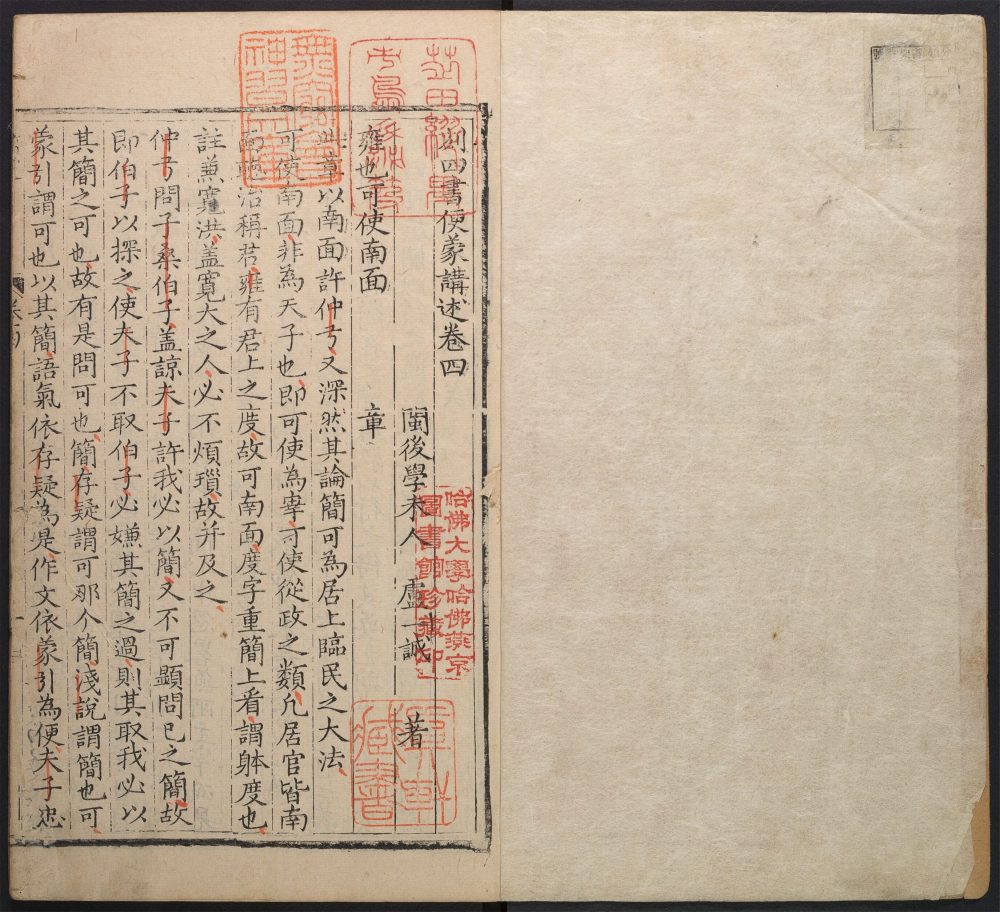 刻四書便蒙講述卷四
閩後學未人 盧一誠 著
雍也可使南面 章
此章以南面許仲弓又深然其論簡可為居上臨民之大法
可使南面非為天子也即可使為宰可使從政之類凡居官皆南
面聽治稱君雍有君上之度故可南面度字重簡上看謂躰度也
註兼寬洪盖寬大之人必不煩瑣故并及之
仲弓問子桑伯子盖諒夫子許我必以簡又不可顕問已之簡故
即伯子以探之使夫子不取伯子必嫌其簡之過則其取我必以
其簡之可也故有是問可也簡存疑謂可那个簡淺說謂簡也可
蒙引謂可也以其簡語氣依存疑為是作文依蒙引為便夫子
哈佛大學哈佛燕京
圖書館珍藏印